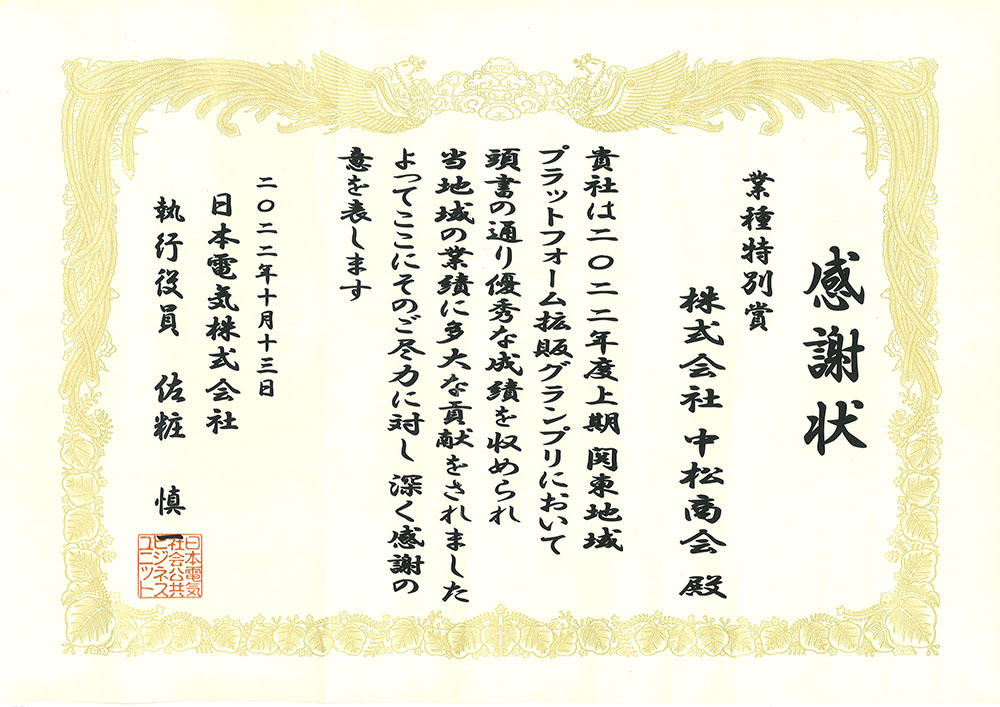 感謝状
業種特別賞
株式会社 中松商会 殿
貴社は二〇二二年度上期 関東地域
プラットフォーム拡販グランプリにおいて
頭書の通り優秀な成績を収められ
当地域の業績に多大な貢献をされました
よってここにそのご尽力に対し 深く感謝の
意を表します
二〇二二年十月十三日
日本電気株式会社
執行役員 佐粧 慎一
日本電気
社会公共
ビジネス
ユニット